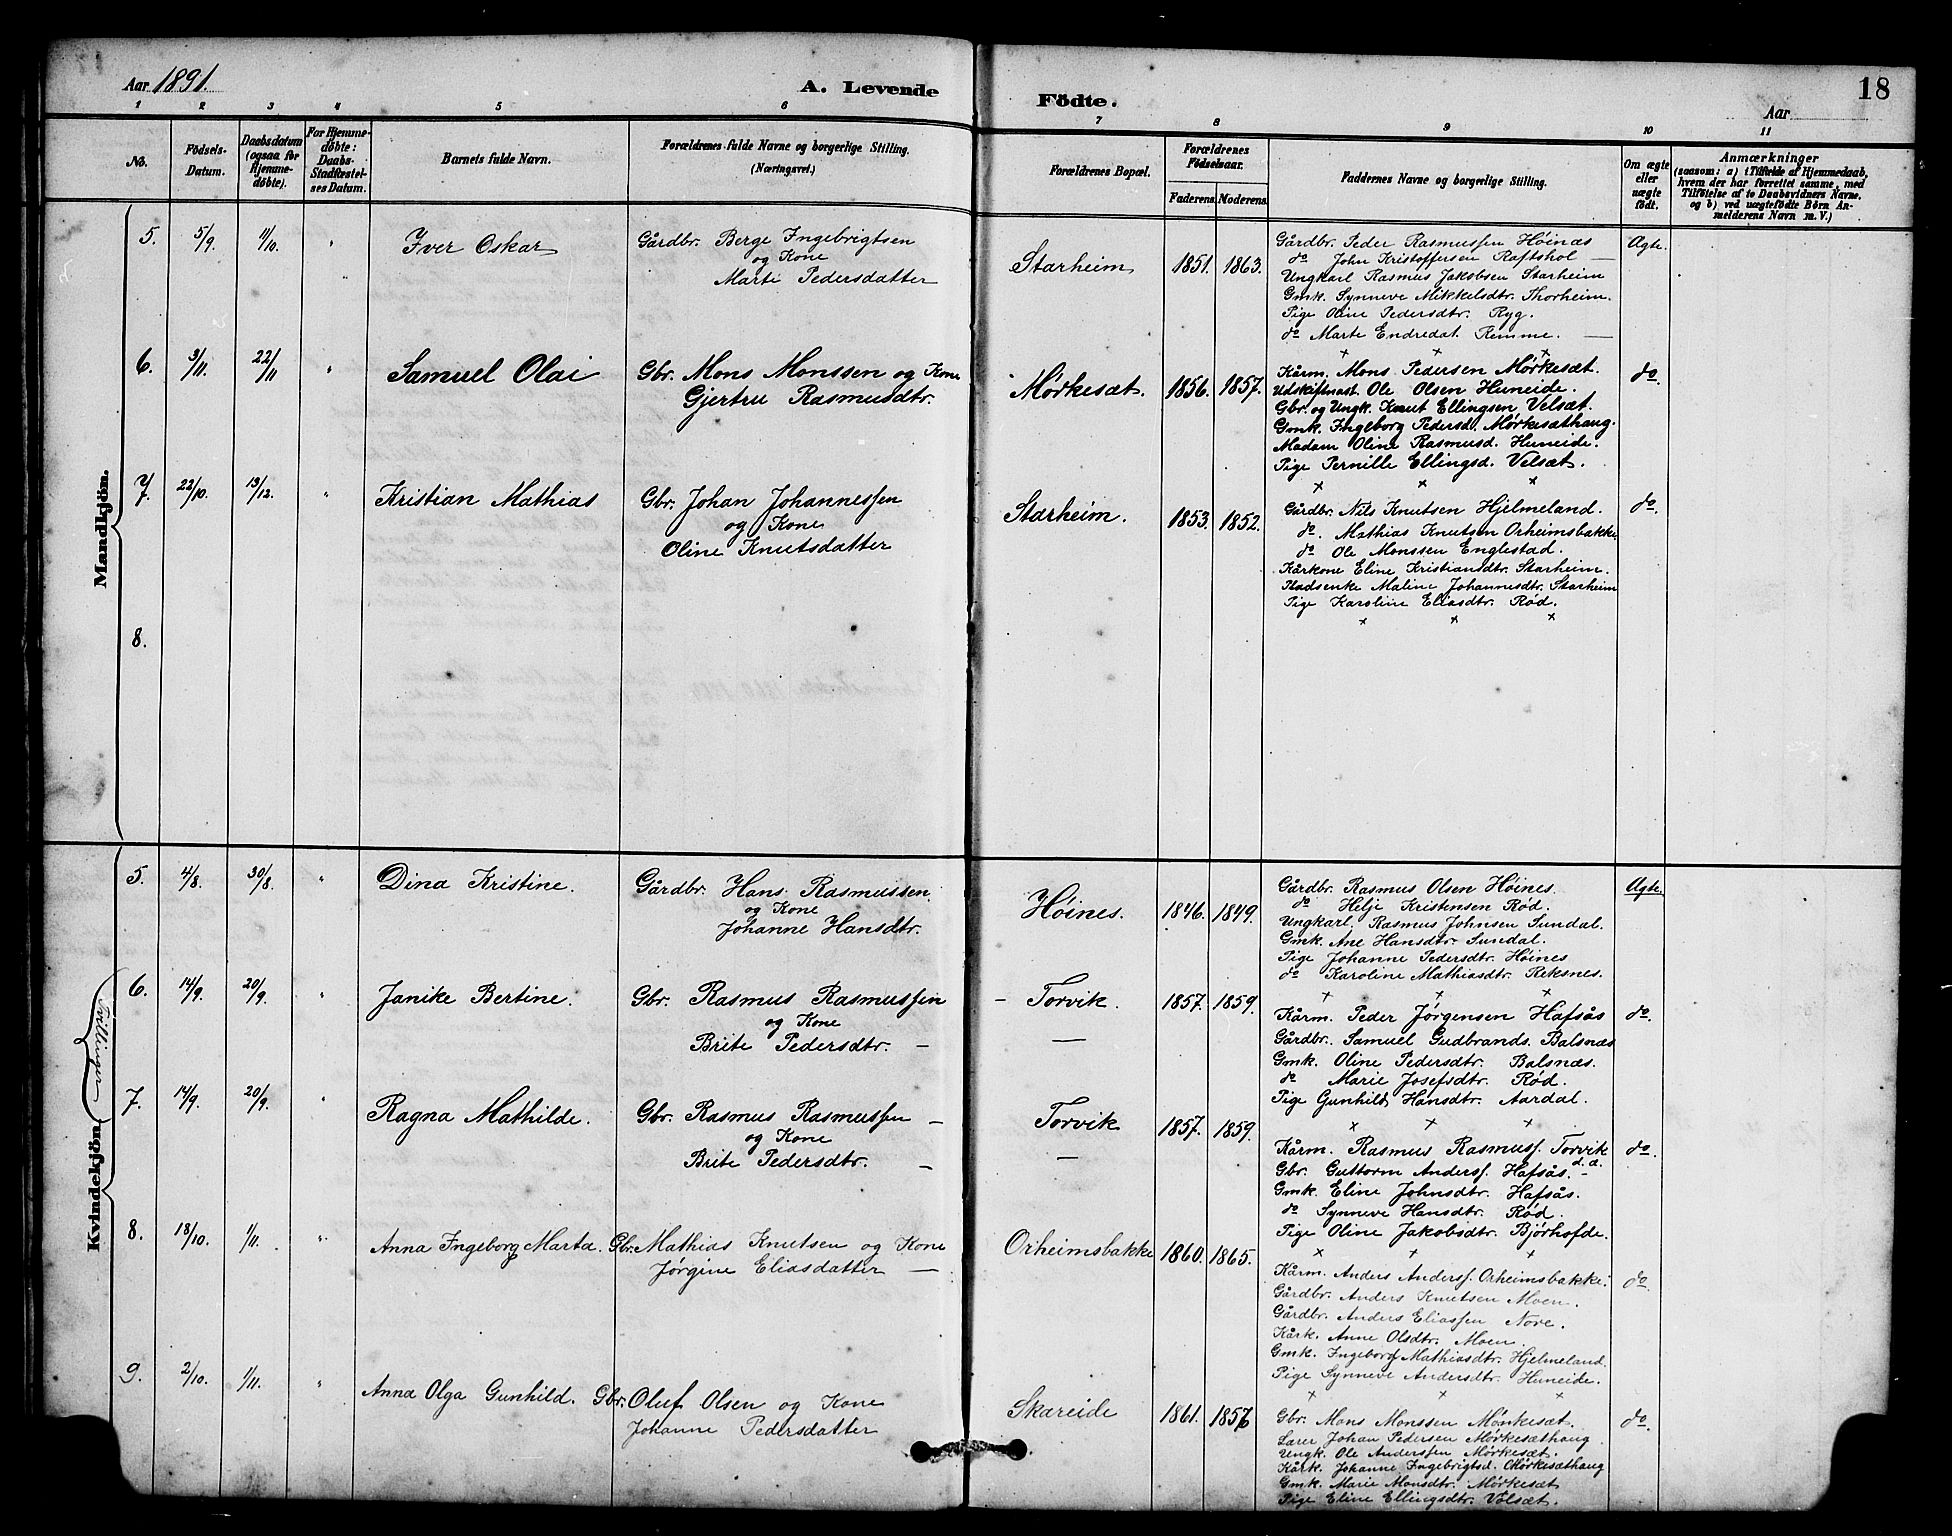 Aar 1891.
A. Levende Födte.
Aar
18
1 2 3 4 5 6 7 8 9 10 11
No.
Födsels-Datum.
Daabsdatum (ogsaa for Hjemme-döbte).
For Hjemme-döbte: Daabs-Stadfæstel-ses Datum.
Barnets fulde Navn.
Forældrenes fulde Navne og borgerlige Stilling.
(Næringsvei.)
Forældrenes Bopæl.
Forældrenes Födselsaar.
Faderens. Moderens.
Faddernes Navne og borgerlige Stilling.
Om ægte eller uægte födt.
Anmærkninger
(saasom: a) i Tilfælde af Hjemmedaab, hvem der har forrettet samme, med Tilföielse af to Daabsvidners Navne, og b) ved uægtefödte Börn An-melderens Navn m. V.)
Mandkjön.
5. 5/9 11/10 " Iver Oskar
Gårdbr. Berge Ingebrigtsen
og Kone
Marti Pedersdatter
Starheim 1851. 1863.
Gårdbr. Peder Rasmussen Höinæs
do John Kristoffersen Raftshol —
Ungkarl Rasmus Jakobsen Starheim
Gmk. Synneve Mikkelsdtr. Thorheim.
Pige Oline Pedersdtr. Ryg.
do Marte Endredat. Remme. —
Agte.
6. 3/11. 22/11 " Samuel Olai
Gbr. Mons Monssen og Kone
Gjertru Rasmusdtr.
Mørkesæt. 1856. 1857.
Kårm. Mons Pedersen Mørkesæt.
Udskiftmast. Ole Olsen Huneide.
Gbr. og Ungk. Knut Ellingsen Velsæt.
Gmk. Ingeborg Pedersd. Mørkesæthaug.
Madam Oline Rasmusd. Huneide.
Pige Pernille Ellingsd. Velsæt.
do.
7. 22/10. 13/12. " Kristian Mathias
Gbr. Johan Johannessen
og Kone
Oline Knutsdatter
Starheim. 1853. 1852.
Gårdbr. Nils Knutsen Hjelmeland.
do. Mathias Knutsen Orheimsbakke.
do Ole Monssen Englestad.
Kårkone Eline Kristiansdtr. Starheim.
Stadsenke Maline Johannesdtr. Starheim
Pige Karoline Eliasdtr. Rød.
do.
8.
Kvindekjön.
Tvillinger
5. 4/8. 30/8. " Dina Kristine.
Gårdbr. Hans Rasmussen.
og Kone
Johanne Hansdtr.
Höines. 1846. 1849.
Gårdbr. Rasmus Olsen Höines.
do Helje Kristensen Rød.
Ungkarl. Rasmus Johnsen Sundal.
Gmk. Ane Hansdtr. Sundal.
Pige Johanne Pedersdtr. Höines
do Karoline Mathiasdtr. Reksnes.
Agte.
6. 14/9. 20/9. " Janike Bertine.
Gbr. Rasmus Rasmussen
og Kone
Brite Pedersdtr. —
Torvik. 1857. 1859.
Kårm. Peder Jörgensen Hafsås
Gårdbr. Samuel Gudbrands. Balsnæs
Gmk. Oline Pedersdtr. Balsnæs.
do Marie Josefsdtr. Rød.
Pige Gunhild Hansdtr. Aardal.
do.
7. 14/9. 20/9. " Ragna Mathilde.
Gbr. Rasmus Rasmussen —
og Kone
Brite Pedersdtr. —
Torvik 1857. 1859.
Kårm. Rasmus Rasmuss. Torvik
Gbr. Guttorm Anderss. Hafsås. d.æ.
Gmk. Eline Johnsdtr. Hafsås.
do Synneve Hansdtr. Rød.
Pige Oline Jakobsdtr. Bjørhofde.
do.
8. 18/10. 1/11. " Anna Ingeborg Marta.
Gbr. Mathias Knutsen og Kone
Jørgine Eliasdatter —
Orheimsbakke 1860. 1865.
Kårm. Anders Anderss. Orheimsbakke.
Gårdbr. Anders Knutsen Moen.
Gårdbr. Anders Eliassen Nore.
Kårk. Anne Olsdtr. Moen.
Gmk. Ingeborg Mathiasdtr. Hjelmeland.
Pige Synneve Andersdtr. Huneide.
do
9. 2/10. 1/11. " Anna Olga Gunhild.
Gbr. Oluf Olsen og Kone
Johanne Pedersdatter
Skareide 1861. 1857
Gbr. Mons Monssen Mørkesæt.
Lærer Johan Pedersen Mørkesæthaug
Ungk. Ole Anderssen Mørkesæt.
Kårk. Johanne Ingebrigtsd. Mørkesæthaug
Gmk. Marie Monsdtr. Mørkesæt
Pige Eline Ellingsdtr. Velsæt.
do.